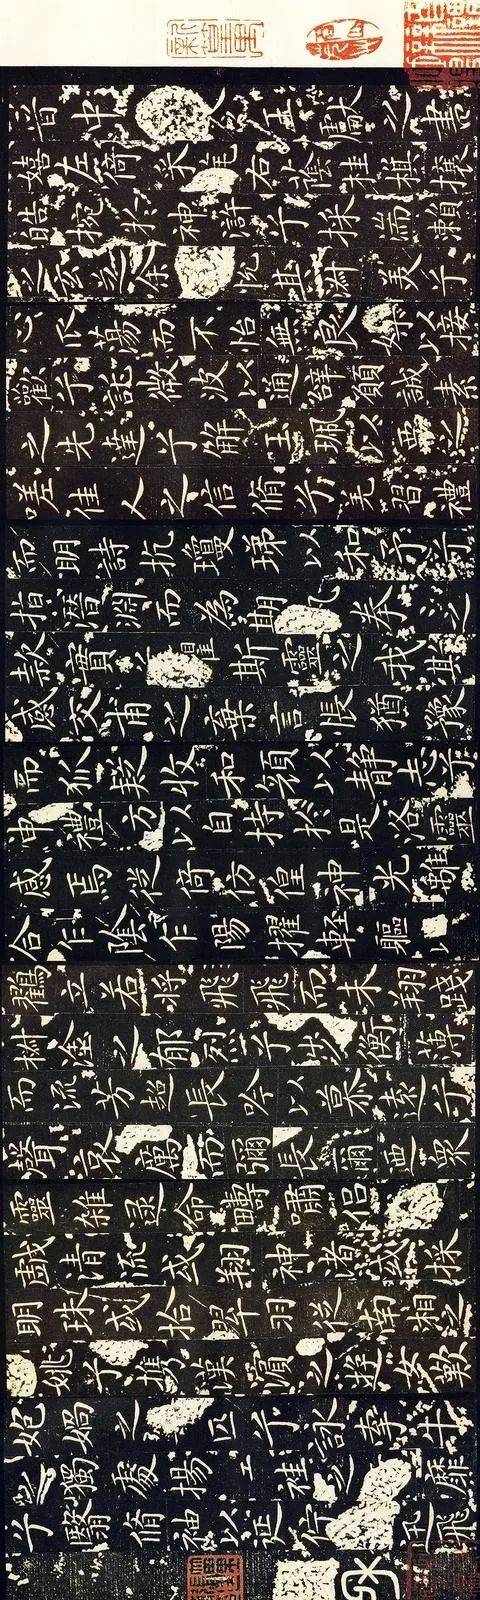 晉中令王獻之書
嬉左倚采旄右蔭桂旗攘
皓腕於神滸兮採湍瀨
之玄芝余悅其淑美兮
心振蕩而不怡無良媒以接
歡兮託微波以通辭願誠素
之先達兮解玉珮以要之
嗟佳人之信脩兮羌習禮
而明詩抗瓊珶以和予兮
指潛淵而為期執拳之
款實兮懼斯靈之我欺
感交甫之棄言悵猶豫
而狐疑收和顏以靜志兮
申禮防以自持於是洛靈
感焉徙倚仿偟神光離
合乍陰乍陽擢輕軀以
鶴立若將飛而未翔踐
椒塗之郁烈兮步衡薄
而流芳超長吟以慕遠兮
聲哀厲而彌長爾乃眾
靈雜遝命疇嘯侶
戲清流或翔神渚或採
明珠或拾翠羽從南湘之
姚兮攜漢濱之游女歎
匏媧之匹兮詠牽牛
之獨處揚輕袿之靡
兮翳脩袖以延佇迅飛